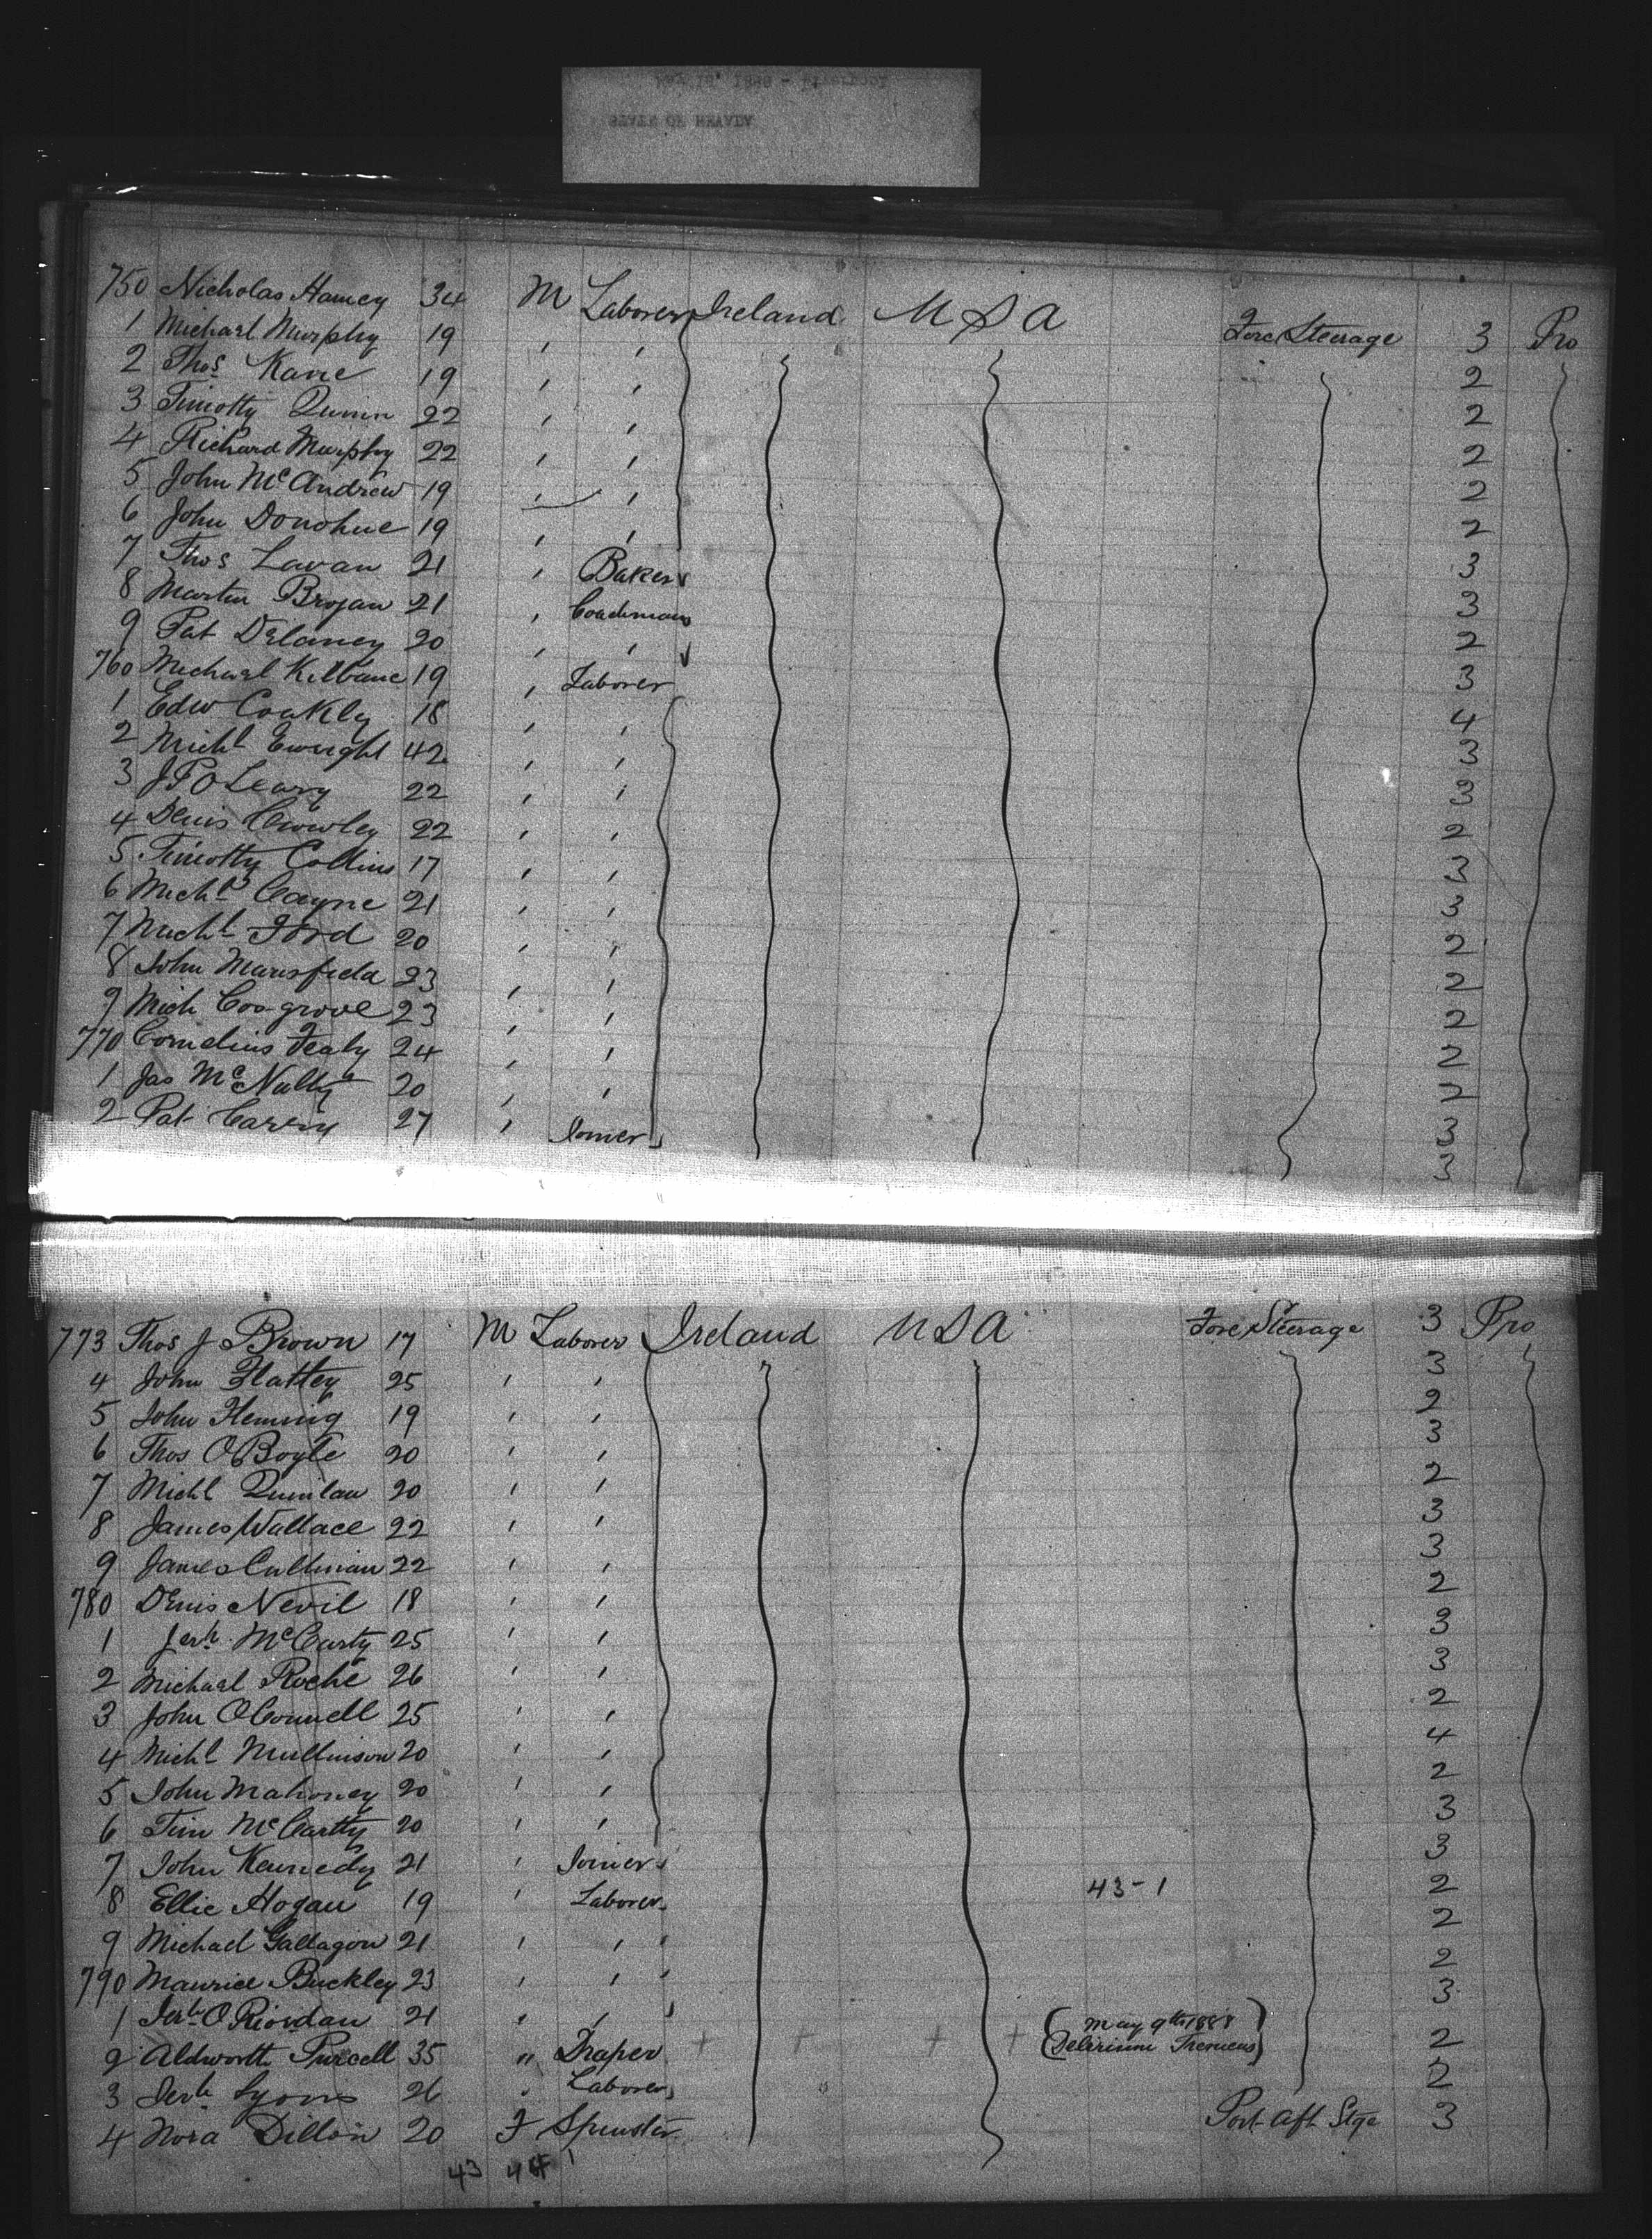 750 Nicholas Hamey 34 M Laborer Ireland U S A Fore Steerage 3 Pro
1 Michael Murphy 19 , , 2
2 Thos Kane 19 , , 2
3 Timothy Quinn 22 , , 2
4 Richard Murphy 22 , , 2
5 John McAndrew 19 , , 2
6 John Donohue 19 , , 3
7 Thos Lavan 21 , Baker 3
8 Martin Brogan 21 , Coachman 2
9 Pat Delaney 20 , , 3
760 Michael Kilbane 19 , Laborer 4
1 Edw Coakly 18 , , 3
2 Michl Enright 42 , , 3
3 J P O Leary 22 , , 2
4 Denis Crowley 22 , , 3
5 Timothy Collins 17 , , 3
6 Michl Cayne 21 , , 2
7 Michl Ford 20 , , 2
8 John Mansfield 23 , , 2
9 Mich Cosgrove 23 , , 2
770 Cornelius Fealy 24 , , 2
1 Jas McNulty 20 , , 3
2 Pat Carey 27 , Joiner 3
773 Thos J Brown 17 M Laborer Ireland U S A Fore Steerage 3 Pro
4 John Flattey 25 , , 3
5 John Fleming 19 , , 2
6 Thos O Boyle 20 , , 3
7 Michl Quinlan 20 , , 2
8 James Wallace 22 , , 3
9 James Cullinan 22 , , 3
780 Denis Nevil 18 , , 2
1 Jerh McCarty 25 , , 3
2 Michael Roche 26 , , 3
3 John O Connell 25 , , 2
4 Michl Mullinson 20 , , 4
5 John Mahoney 20 , , 2
6 Tim McCartty 20 , , 3
7 John Kennedy 21 , Joiner 3
8 Ellie Hogan 19 , Laborer 43-1 2
9 Michael Gallagon 21 , , , 2
790 Maurice Buckley 23 , , , 2
1 Jerh O Riordan 21 , , , 3
2 Aldworth Purcell 35 " Draper (May 9th 1888 Delirium Tremens) 2
3 Jerh Lyons 26 " Laborer 2
4 Nora Dillon 20 F Spinster Port Aft Stge 3
43 44 1